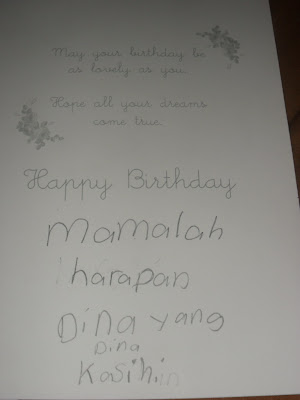 May your birthday be
as lovely as you.
Hope all your dreams
come true.
Happy Birthday
mamalah
harapan
Dina yang
Dina
Kasihiin